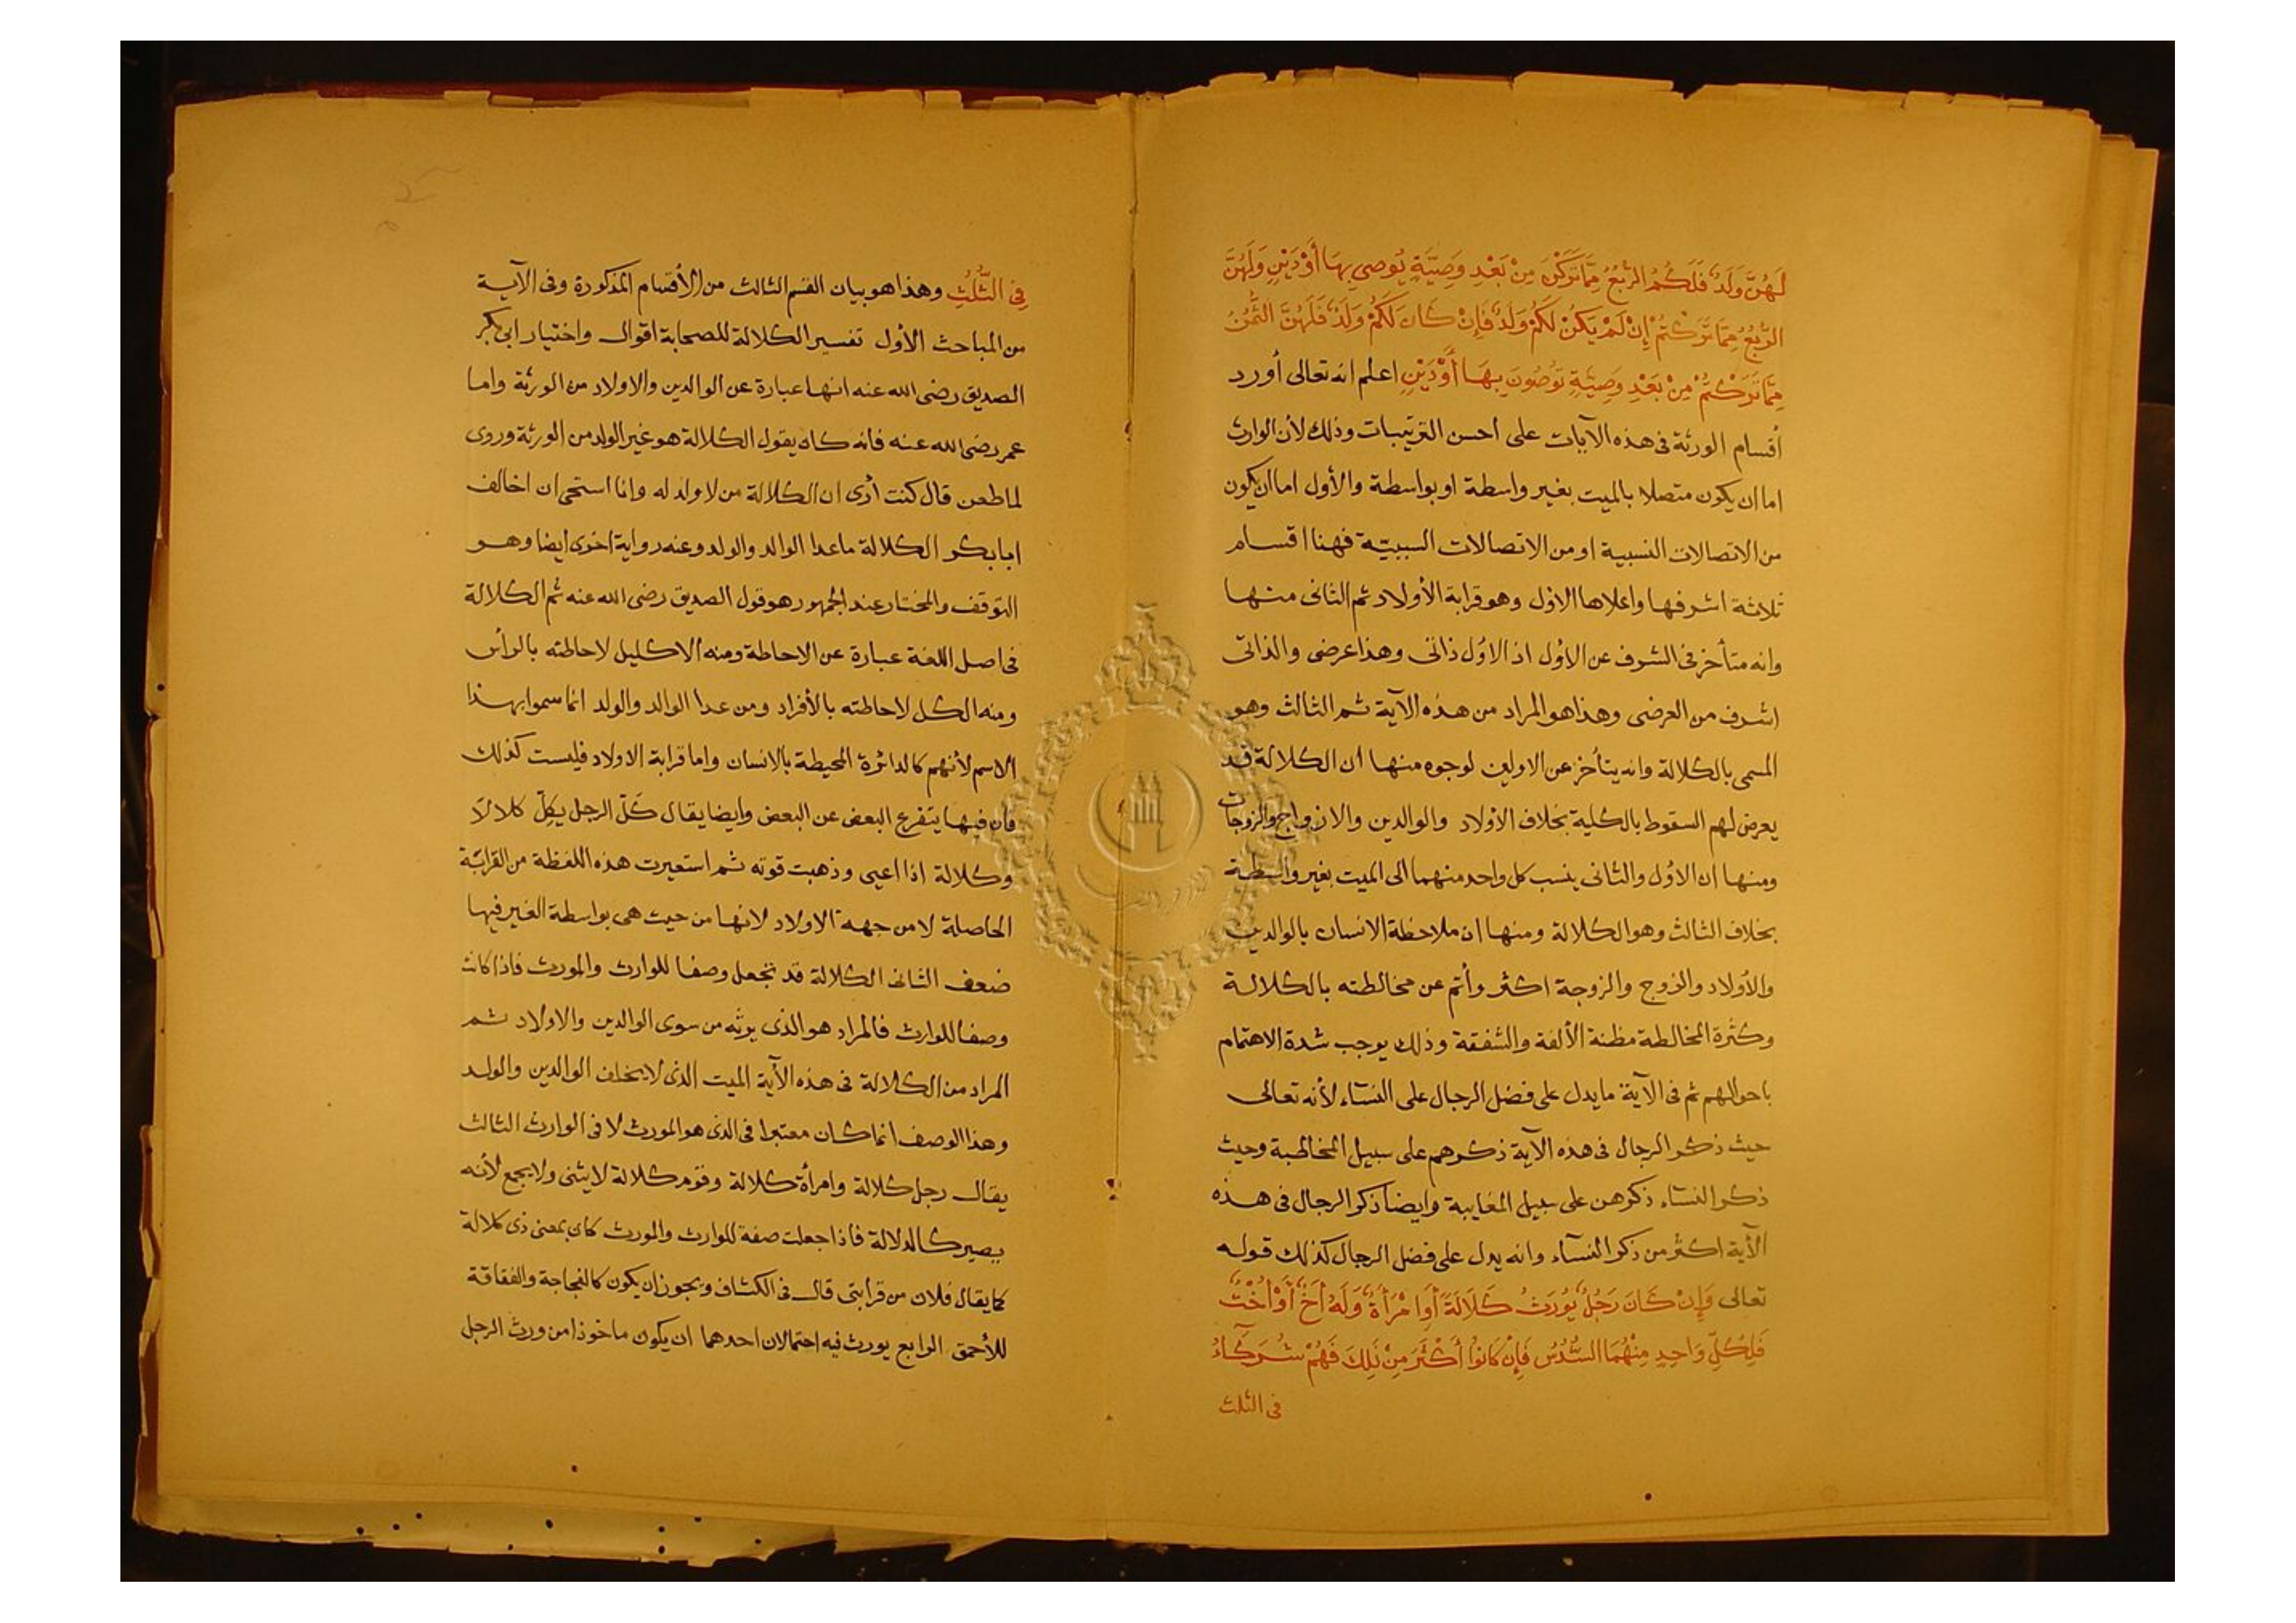 لَهُنَّ وَلَدٌ فَلَكُمُ الرُّبُعُ مِمَّا تَرَكْنَ مِنْ بَعْدِ وَصِيَّةٍ يُوصِي بِهَا أَوْ دَيْنٍ وَلَهُنَّ
الرُّبُعُ مِمَّا تَرَكْتُمْ إِنْ لَمْ يَكُنْ لَكُمْ وَلَدٌ فَإِنْ كَانَ لَكُمْ وَلَدٌ فَلَهُنَّ الثُّمُنُ
مِمَّا تَرَكْتُمْ مِنْ بَعْدِ وَصِيَّةٍ تُوصُونَ بِهَا أَوْ دَيْنٍ اعلم انه تعالى أورد
أقسام الورثة فى هذه الآيات على احسن الترتيبات وذلك لأن الوارث
اما ان يكون متصلا بالميت بغير واسطة او بواسطة والأول اما ان يكون
من الاتصالات النسبية او من الاتصالات السببيّة فهنا اقسام
ثلاثة اشرفها واعلاها الاول وهو قرابة الأولاد ثم الثانى منها
وانه متأخر فى الشرف عن الأول اذ الاول ذاتى وهذا عرضى والذاتى
اشرف من العرضى وهذا هو المراد من هذه الآية ثم الثالث وهو
المسمى بالكلالة وانه يتأخر عن الاولين لوجوه منها ان الكلالة قد
يعرض لهم السقوط بالكلية بخلاف الأولاد والوالدين والازواج والزوجات
ومنها ان الاول والثانى ينسب كل واحد منهما الى الميت بغير واسطة
بخلاف الثالث وهو الكلالة ومنها ان ملاحظة الانسان بالوالدين
والأولاد والزوج والزوجة اكثر وأتم عن مخالطته بالكلالة
وكثرة المخالطة مظنة الألفة والشفقة وذلك يوجب شدة الاهتمام
باحوالهم ثم فى الآية ما يدل على فضل الرجال على النسآء لأنه تعالى
حيث ذكر الرجال فى هذه الآية ذكرهم على سبيل المخاطبة وحيث
ذكر النسآء ذكرهن على سبيل المغايبة وايضا ذكر الرجال فى هذه
الآية اكثر من ذكر النسآء وانه يدل على فضل الرجال كذلك قوله
تعالى وَإِنْ كَانَ رَجُلٌ يُورَثُ كَلَالَةً أَوِ امْرَأَةٌ وَلَهُ أَخٌ أَوْ أُخْتٌ
فَلِكُلِّ وَاحِدٍ مِنْهُمَا السُّدُسُ فَإِنْ كَانُوا أَكْثَرَ مِنْ ذَلِكَ فَهُمْ شُرَكَآءُ
فى الثلث
فِى الثُّلُثِ وهذا هو بيان القسم الثالث من الأقسام المذكورة وفى الآية
من المباحث الأول تفسير الكلالة للصحابة اقوال واختيار ابى بكر
الصديق رضى الله عنه انها عبارة عن الوالدين والاولاد من الورثة واما
عمر رضى الله عنه فانه كان يقول الكلالة هو غير الولد من الورثة وروى
لما طعن قال كنت أرى ان الكلالة من لا ولد له وانا استحى ان اخالف
ابا بكر الكلالة ما عدا الوالد والولد وعنه رواية اخرى ايضا وهو
التوقف والمختار عند الجمهور هو قول الصديق رضى الله عنه ثم الكلالة
فى اصل اللغة عبارة عن الاحاطة ومنه الاكليل لاحاطته بالرأس
ومنه الكل لاحاطته بالأفراد ومن عدا الوالد والولد انما سموا بهذا
الاسم لأنهم كالدائرة المحيطة بالانسان واما قرابة الاولاد فليست كذلك
فان فيها يتفرع البعض عن البعض وايضا يقال كَلّ الرجل يكلّ كلالا
وكلالة اذا اعيى وذهبت قوته ثم استعيرت هذه اللفظة من القرابة
الحاصلة لا من جهة الاولاد لانها من حيث هى بواسطة الغير فيها
ضعف الثانى الكلالة قد تجعل وصفا للوارث والمورث فاذا كانت
وصفا للوارث فالمراد هو الذى يرثه من سوى الوالدين والاولاد ثم
المراد من الكلالة فى هذه الآية الميت الذى لا يخلف الوالدين والولد
وهذا الوصف انما كان معتبرا فى الذى هو المورث لا فى الوارث الثالث
يقال رجل كلالة وامرأة كلالة وقوم كلالة لا يثنى ولا يجمع لأنه
يصير كالدلالة فاذا جعلت صفة للوارث والمورث كان بمعنى ذى كلالة
كما يقال فلان من قرابتى قال فى الكشاف ويجوز ان يكون كالفجاجة والفقاقة
للأحمق الرابع يورث فيه احتمالان احدهما ان يكون ماخوذا من ورث الرجل